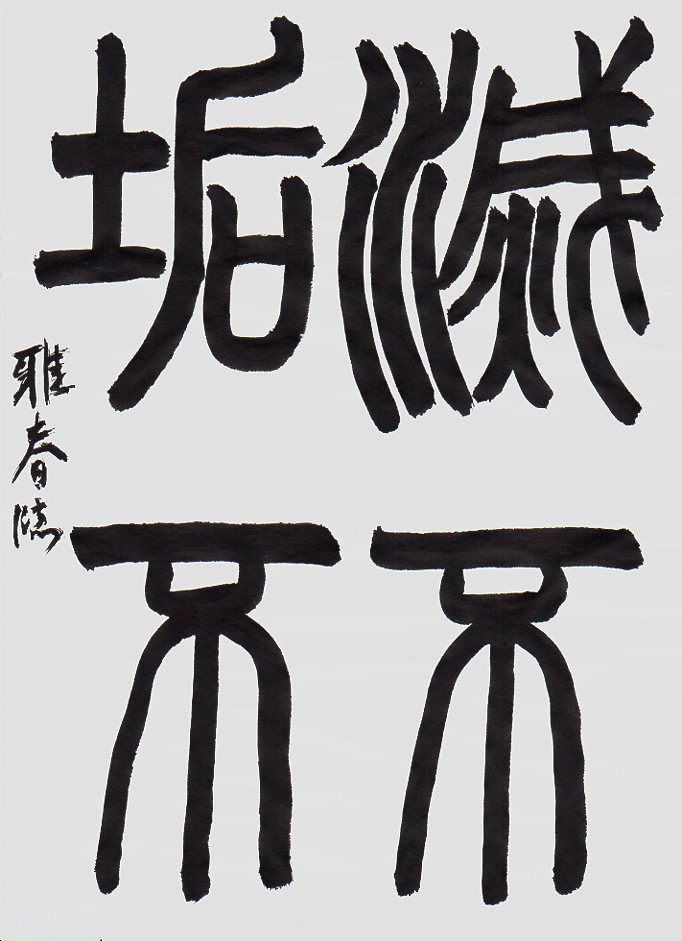 滅不
垢不
雅春臨